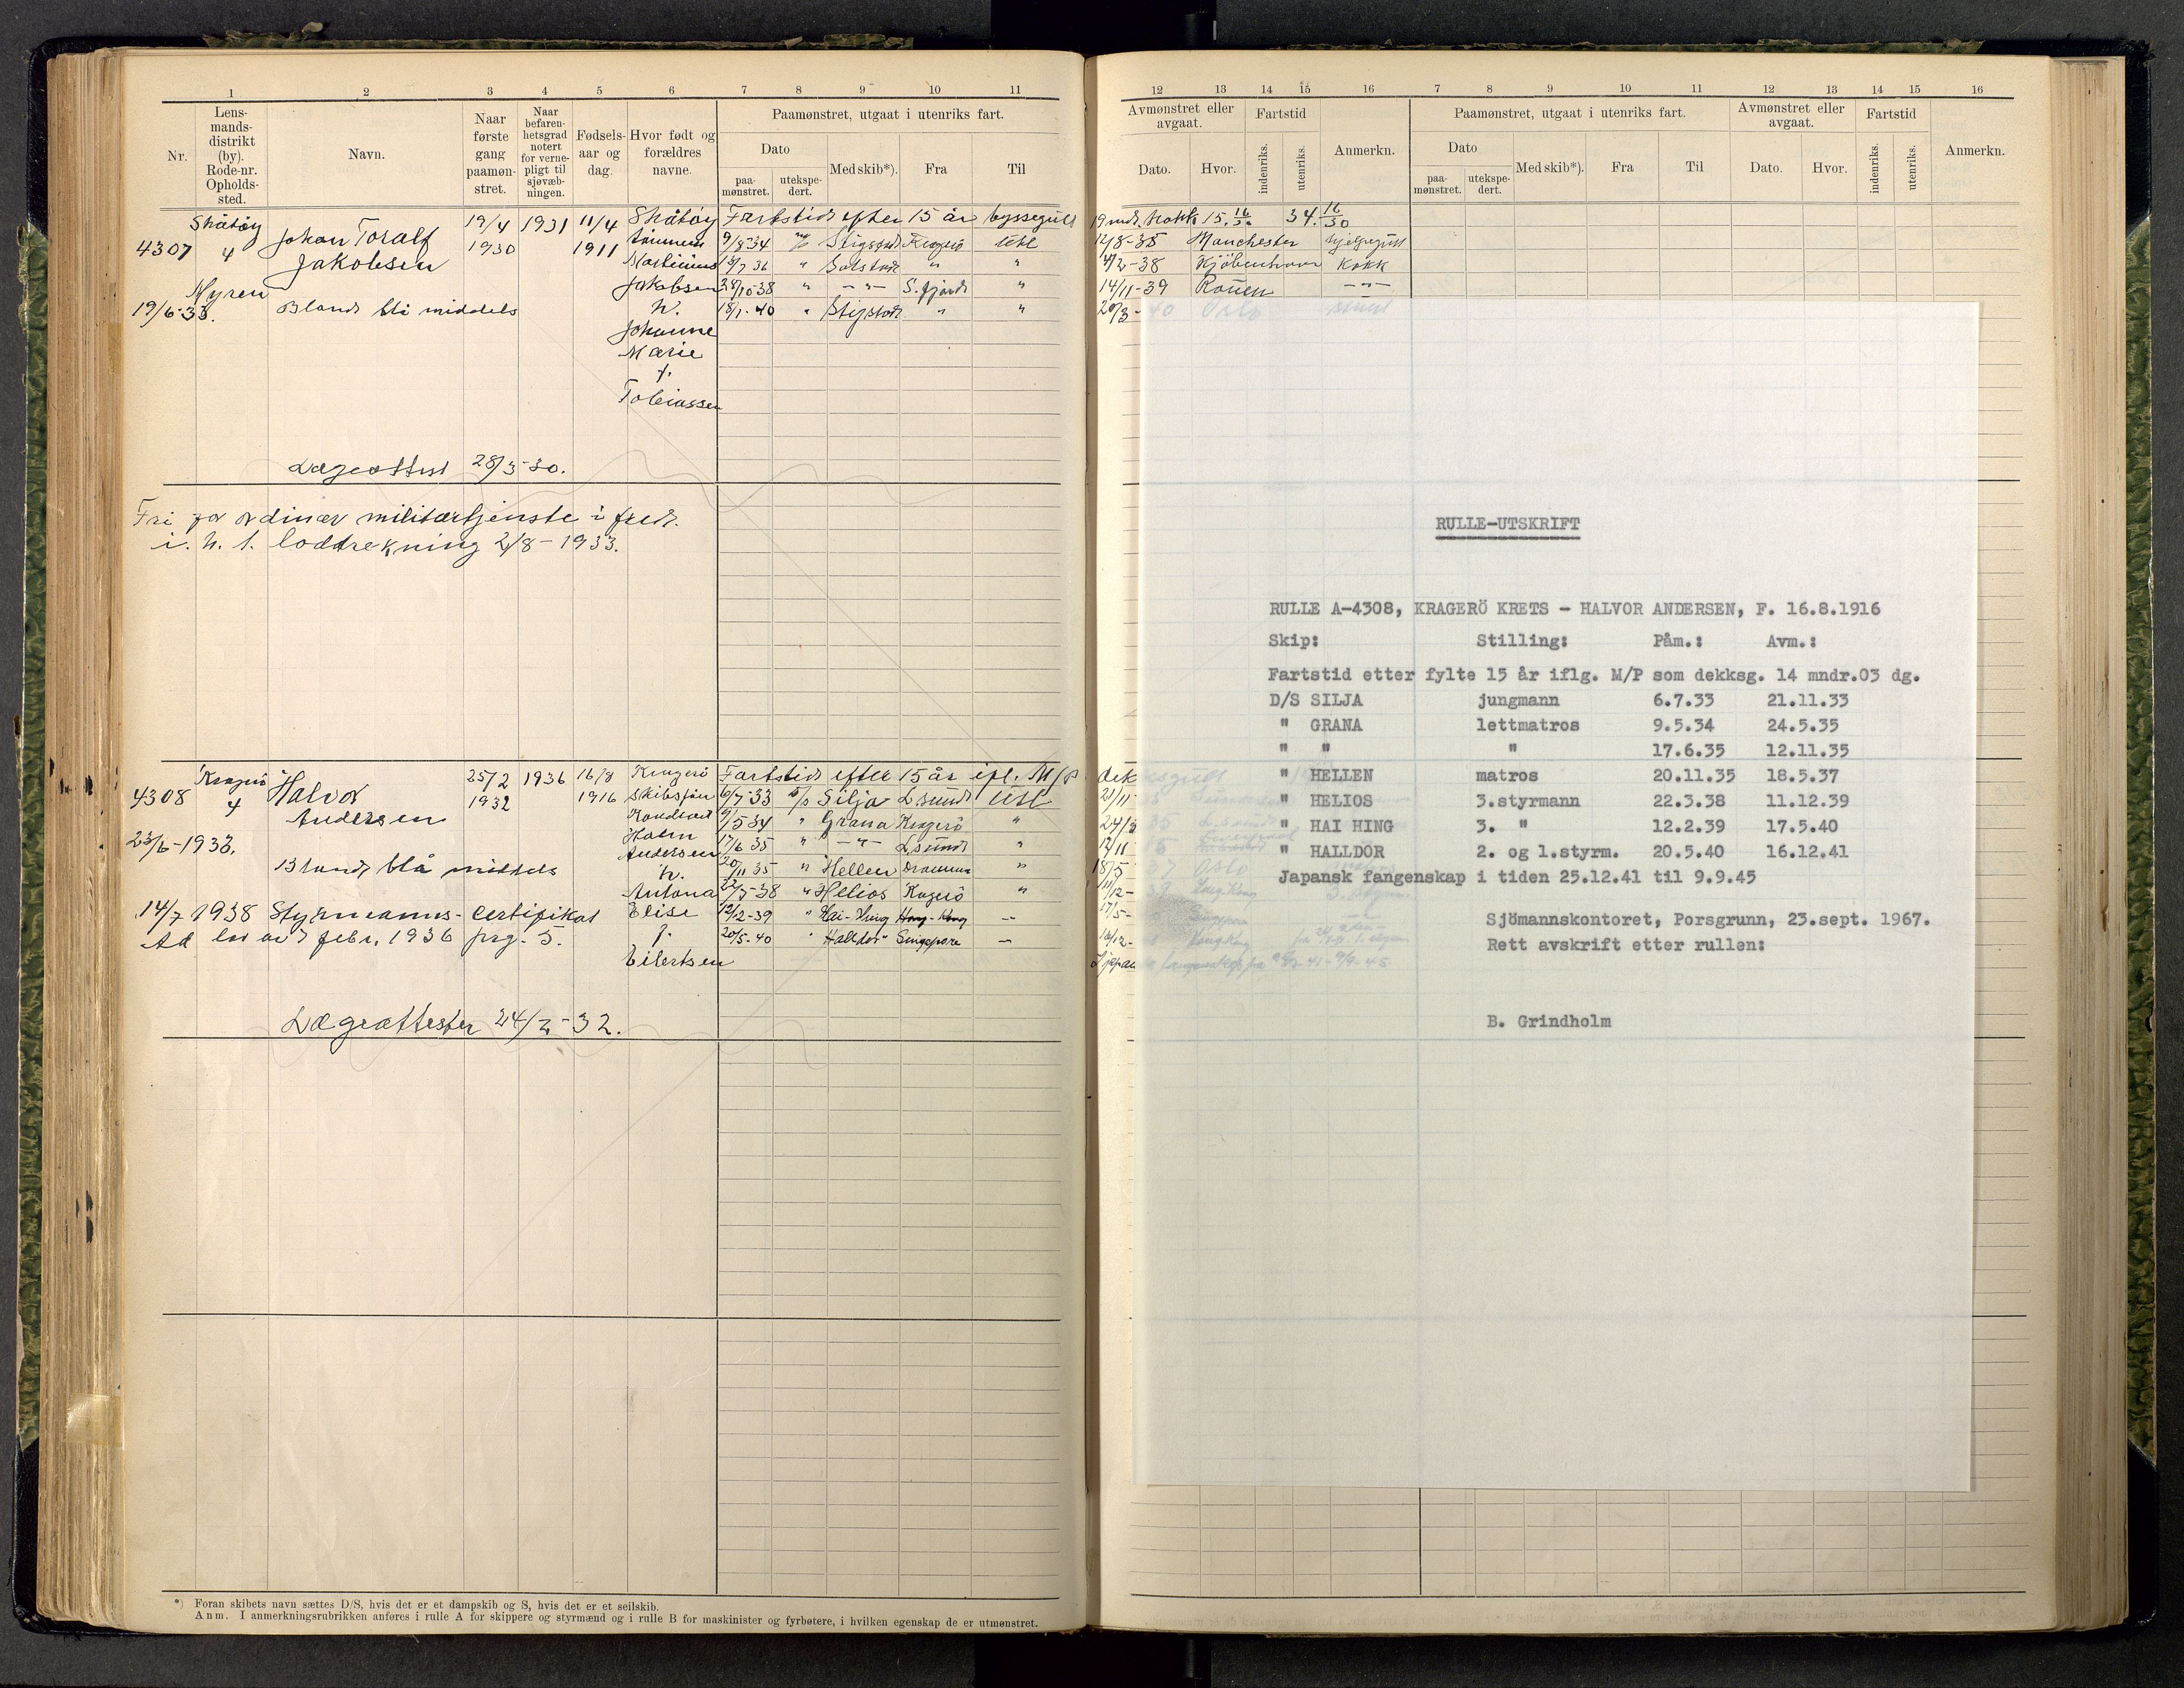 1 2 3 4 5 6 7 8 9 10 11
Nr.
Lens-
mands-
distrikt
(by).
Rode-nr.
Opholds-
sted.
Navn.
Naar
første
gang
paamøn-
stret.
Naar
befaren-
hetsgrad
notert
for verne-
pligt til
sjøvæb-
ningen.
Fødsels-
aar og
dag.
Hvor født og
forældres
navne.
Paamønstret, utgaat i utenriks fart.
Dato
paa-
mønstret.
utekspe-
dert.
Med skib*).
Fra
Til
Skåtøy 19/4 1931 11/4 Skåtøy Fartstid efter 15 år byssegutt
4307 4 Johan Toralf 1930 1911 9/8-34 Stigstad Kragerø Utl
Jakobsen Martinius 13/7 36 " Solstad " "
Myren Jakobsen 28/10-38 " -"- S.fjord "
19/6-33. Blond blå middels h. 18/1-40 " Stigstad " "
Johanne
Marie
f.
Tobiassen
Lægeattest 28/3-30.
Fri for ordinær militærtjenste i fred.
i. h. t. loddtrekning 2/8-1933.
Kragerø 25/2 1936 16/8 Kragerø Fartstid efter 15 år ifl. M/P
4308 4 Halvor 1932 1916 Skibsfør 6/7-33 D/S Silja L.sund Utl
Andersen 9/5 34 " Grana Kragerø "
23/6-1933. Holm 17/6 35 " -"- L.sund "
Andersen
Blond blå middels h. 20/11 35 " Hellen Drammen "
Antona 22/3-38 " Helios Kragerø "
14/7 1938 Styrmanns-Certifikat Elise 12/2-39 " Hai-Hing Hong-Kong -
Ad lov av 7 febr. 1936 prg. 5. f. 20/5-40 " Halldor Singapore -
Eilertsen
Lægeattester 24/2-32.
*) Foran skibets navn sættes D/S, hvis det er et dampskib og S, hvis det er et seilskib.
Anm. I anmerkningsrubrikken anføres i rulle A for skippere og styrmænd og i rulle B for maskinister og fyrbøtere, i hvilken egenskap de er utmønstret.
12 13 14 15 16 7 8 9 10 11 12 13 14 15 16
Avmønstret eller
avgaat.
Dato.
Hvor.
Fartstid
indenriks.
utenriks.
Anmerkn.
Paamønstret, utgaat i utenriks fart.
Dato
paa-
mønstret.
utekspe-
dert.
Med skib*).
Fra
Til
Avmønstret eller
avgaat.
Dato.
Hvor.
Fartstid
indenriks.
utenriks.
Anmerkn.
19 md. kokk 15. 16/30 34. 16/30
12/8-35 Manchester
4/2-38 Kjøbenhavn Kokk
14/11-39 Rouen -"-
20/3-40 Oslo
RULLE-UTSKRIFT
RULLE A-4308, KRAGERÖ KRETS - HALVOR ANDERSEN, F. 16.8.1916
Skip: Stilling: Påm.: Avm.:
Fartstid etter fylte 15 år iflg. M/P som dekksg. 14 mndr.03 dg.
D/S SILJA jungmann 6.7.33 21.11.33
" GRANA lettmatros 9.5.34 24.5.35
" " " 17.6.35 12.11.35
" HELLEN matros 20.11.35 18.5.37
" HELIOS 3.styrmann 22.3.38 11.12.39
" HAI HING 3. " 12.2.39 17.5.40
" HALLDOR 2. og 1.styrm. 20.5.40 16.12.41
Japansk fangenskap i tiden 25.12.41 til 9.9.45
Sjömannskontoret, Porsgrunn, 23.sept. 1967.
Rett avskrift etter rullen:
B. Grindholm